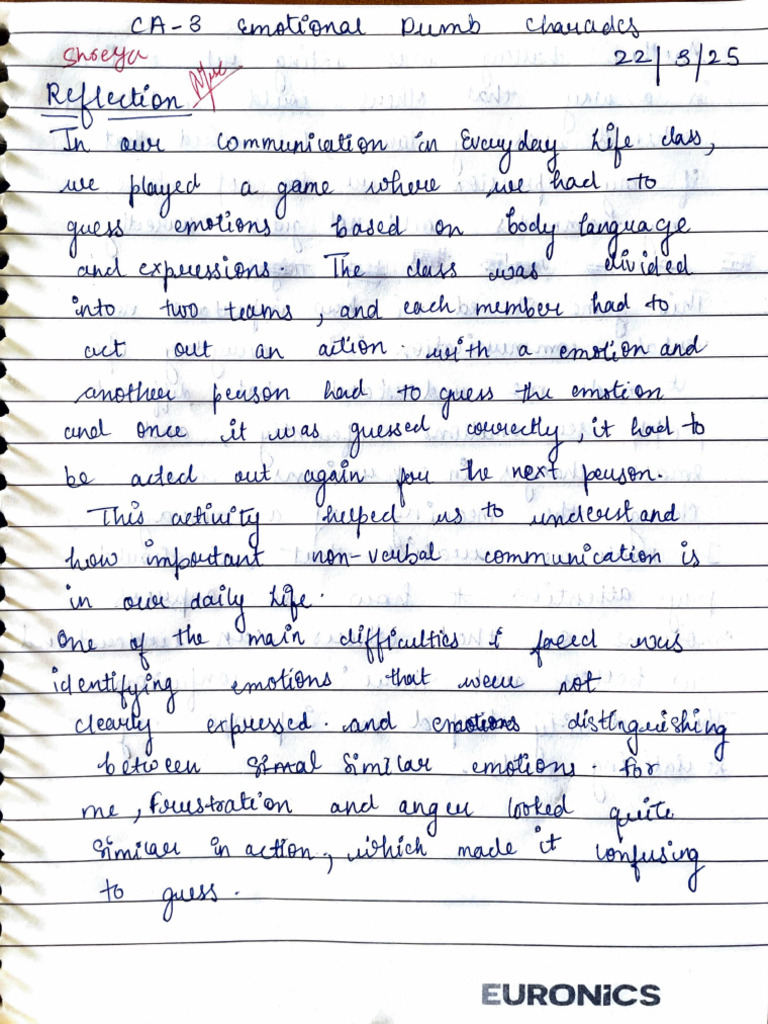 CA-3 Emotional Dumb Charades
Shreya
22/3/25
Reflection
In our communication in Everyday Life class,
we played a game where we had to
guess emotions based on body language
and expressions. The class was divided
into two teams, and each member had to
act out an action. with a emotion and
another person had to guess the emotion
and once it was guessed correctly, it had to
be acted out again for the next person.
This activity helped us to understand
how important non-verbal communication is
in our daily life.
One of the main difficulties I faced was
identifying emotions that were not
clearly expressed. and emotions distinguishing
between simal similar emotions. for
me, frustration and anger looked quite
similar in action, which made it confusing
to guess.
EURONICS